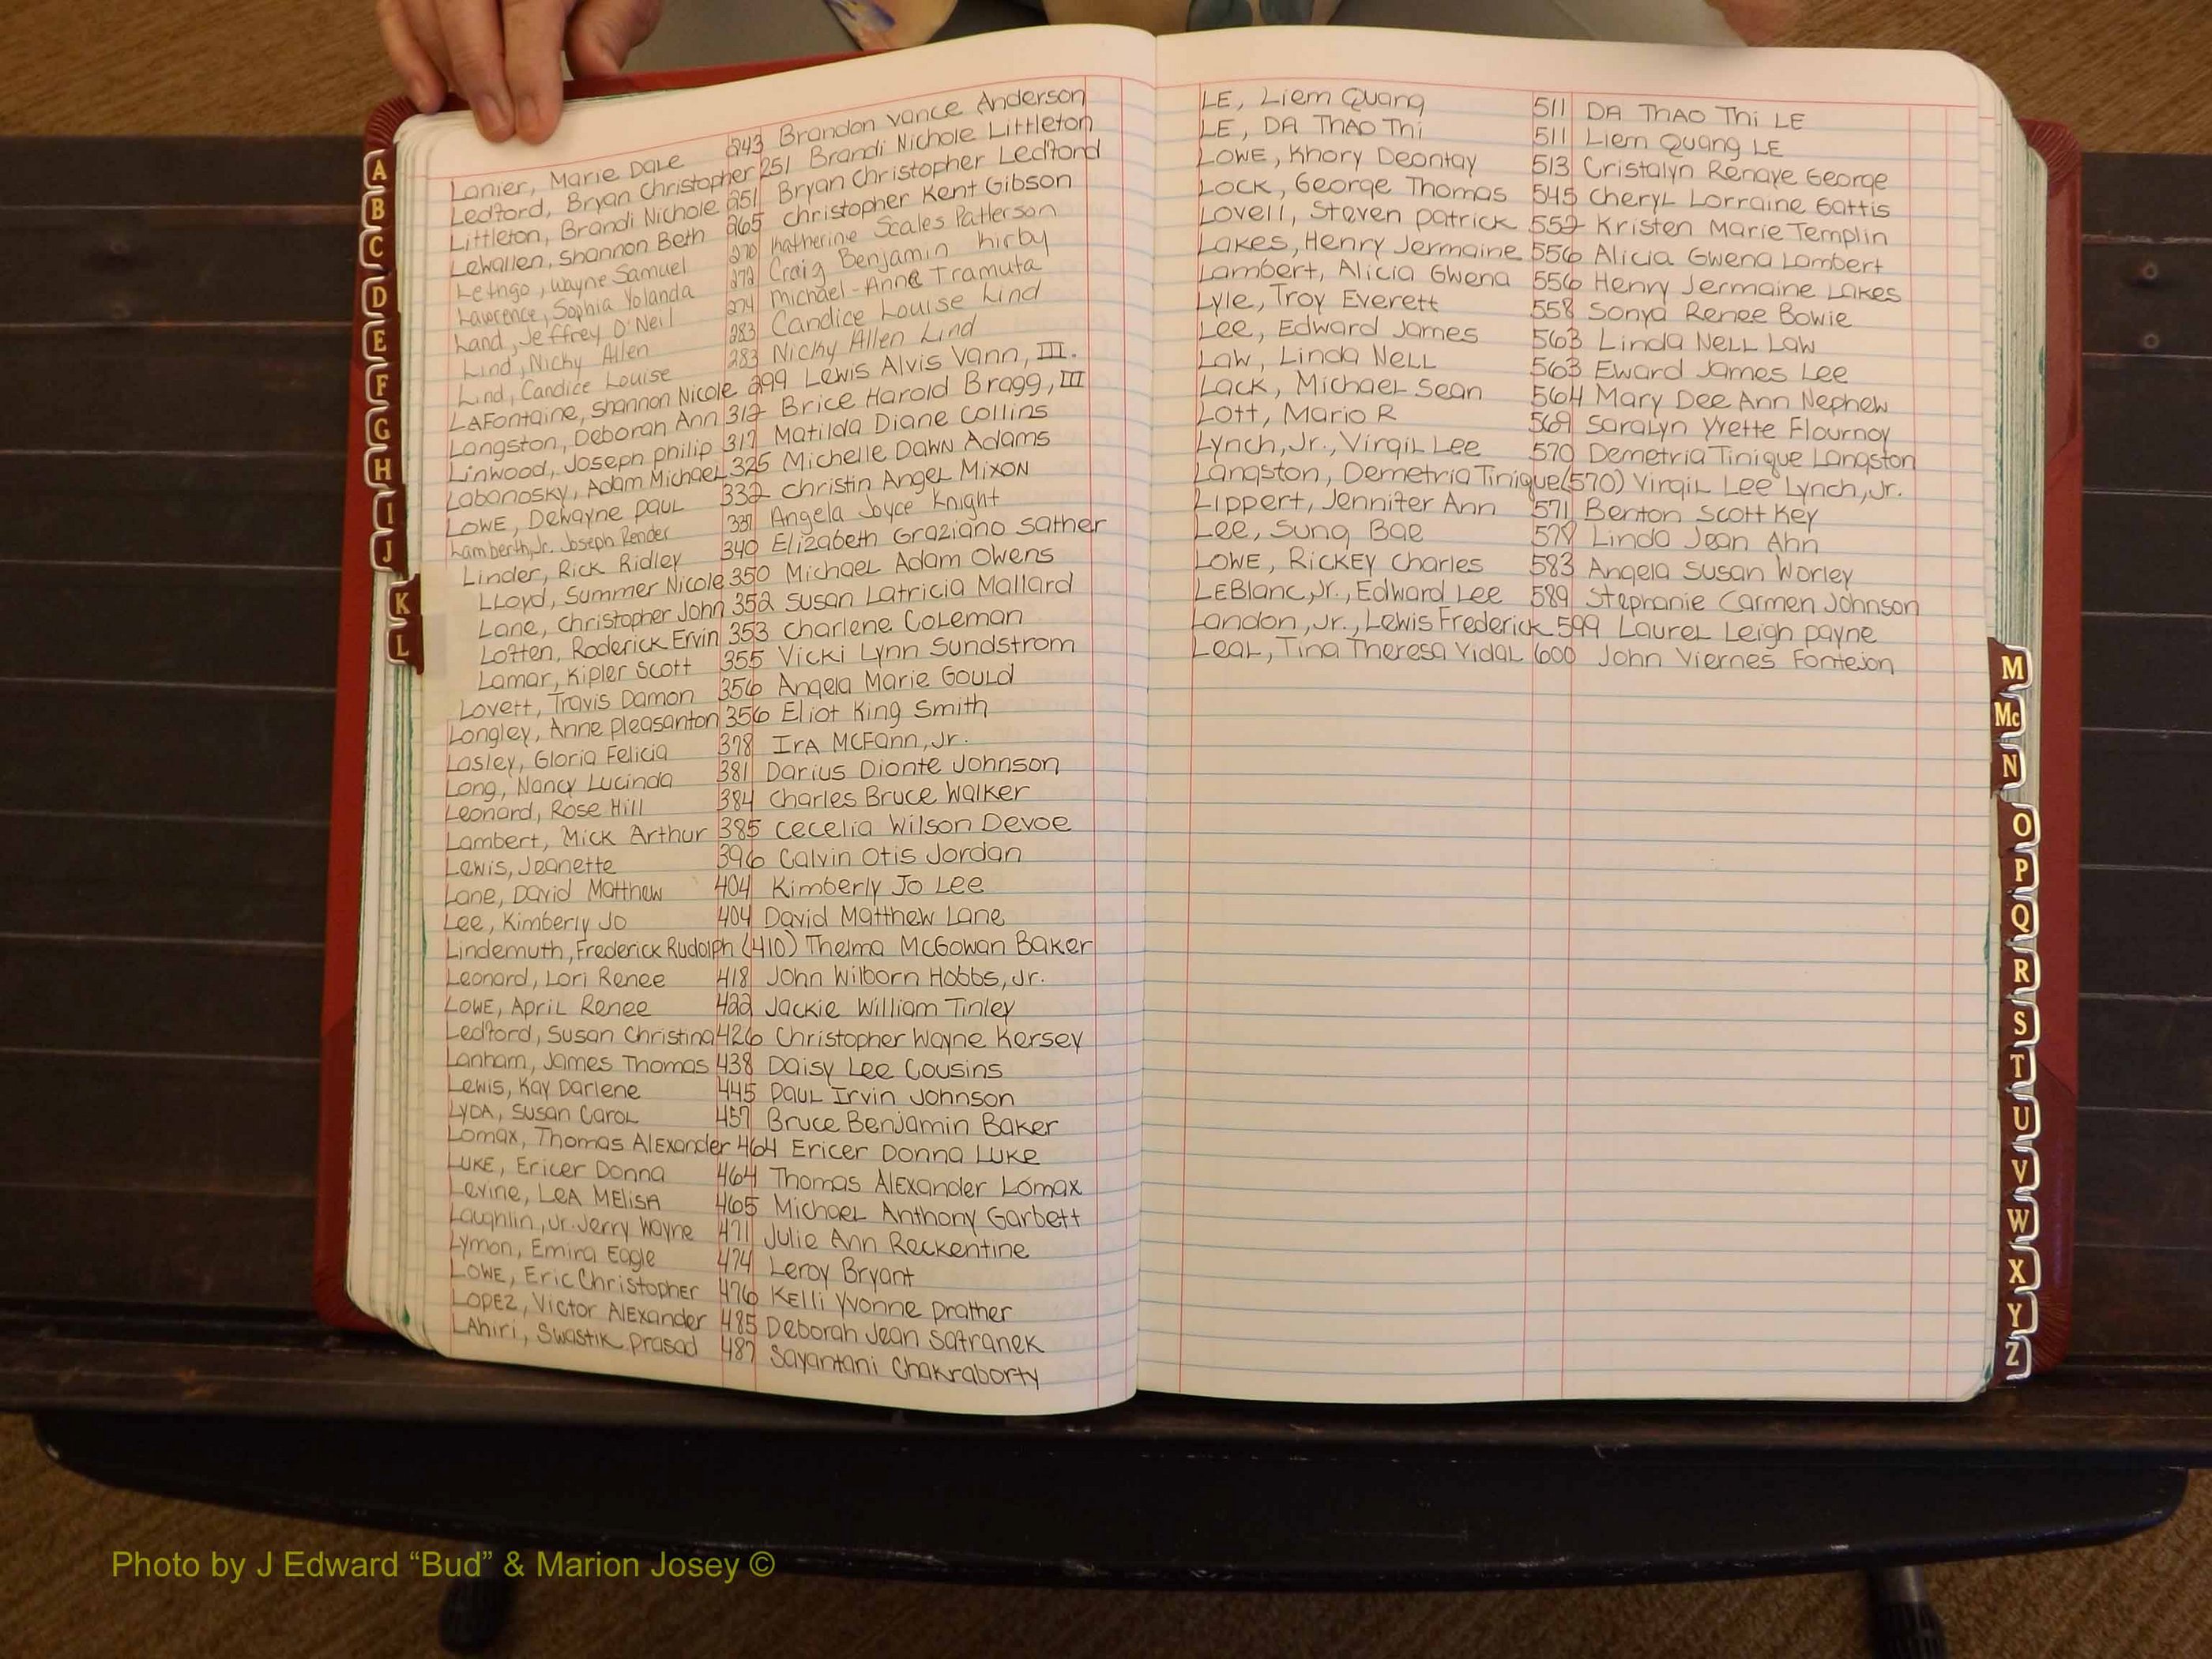 Lanier, Marie Dale 243 Brandon Vance Anderson
Ledford, Bryan Christopher 251 Brandi Nichole Littleton
Littleton, Brandi Nichole 251 Bryan Christopher Ledford
Lewallen, Shannon Beth 265 Christopher Kent Gibson
Lefngo, Wayne Samuel 270 Katherine Scales Patterson
Lawrence, Sophia Yolanda 272 Craig Benjamin Kirby
Land, Jeffrey O'Neil 274 Michael-Anne Tramuta
Lind, Nicky Allen 283 Candice Louise Lind
Lind, Candice Louise 283 Nicky Allen Lind
LAFontaine, Shannon Nicole 299 Lewis Alvis Vann, III.
Langston, Deborah Ann 312 Brice Harold Bragg, III
Linwood, Joseph philip 317 Matilda Diane Collins
Labanosky, Adam Michael 325 Michelle Dawn Adams
Lowe, Dewayne Paul 332 Christin Angel Mixon
Lamberth, Jr. Joseph Render 337 Angela Joyce Knight
Linder, Rick Ridley 340 Elizabeth Graziano Sather
Lloyd, Summer Nicole 350 Michael Adam Owens
Lane, Christopher John 352 Susan Latricia Mallard
Lotten, Roderick Ervin 353 Charlene Coleman
Lamar, Kipler Scott 355 Vicki Lynn Sundstrom
Lovett, Travis Damon 356 Angela Marie Gould
Longley, Anne Pleasanton 356 Eliot King Smith
Lasley, Gloria Felicia 378 Ira McFann, Jr.
Long, Nancy Lucinda 381 Darius Dionte Johnson
Leonard, Rose Hill 384 Charles Bruce Walker
Lambert, Mick Arthur 385 Cecelia Wilson Devoe
Lewis, Jeanette 396 Calvin Otis Jordan
Lane, David Matthew 404 Kimberly Jo Lee
Lee, Kimberly Jo 404 David Matthew Lane
Lindemuth, Frederick Rudolph (410) Thelma McGowan Baker
Leonard, Lori Renee 418 John Wilborn Hobbs, Jr.
Lowe, April Renee 422 Jackie William Tinley
Ledford, Susan Christina 426 Christopher Wayne Kersey
Lanham, James Thomas 438 Daisy Lee Cousins
Lewis, Kay Darlene 445 Paul Irvin Johnson
Lyda, Susan Carol 457 Bruce Benjamin Baker
Lomax, Thomas Alexander 464 Ericer Donna Luke
Luke, Ericer Donna 464 Thomas Alexander Lomax
Levine, Lea Melisa 465 Michael Anthony Garbett
Laughlin, Jr. Jerry Wayne 471 Julie Ann Reckentine
Lymon, Emira Eagle 474 Leroy Bryant
Lowe, Eric Christopher 476 Kelli Yvonne Prather
Lopez, Victor Alexander 485 Deborah Jean Safranek
Lahiri, Swastik Prasad 487 Sayantani Chakraborty
LE, Liem Quang 511 DA THAO Thi LE
LE, DA THAO Thi 511 Liem Quang LE
Lowe, Khory Deontay 513 Cristalyn Renaye George
Lock, George Thomas 545 Cheryl Lorraine Gattis
Lovell, Steven Patrick 552 Kristen Marie Templin
Lakes, Henry Jermaine 556 Alicia Gwena Lambert
Lambert, Alicia Gwena 556 Henry Jermaine Lakes
Lyle, Troy Everett 558 Sonya Renee Bowie
Lee, Edward James 563 Linda Nell Law
Law, Linda Nell 563 Eward James Lee
Lack, Michael Sean 564 Mary Dee Ann Nephew
Lott, Mario R 569 Saralyn Yvette Flournoy
Lynch, Jr., Virgil Lee 570 Demetria Tinique Langston
Langston, Demetria Tinique (570) Virgil Lee Lynch, Jr.
Lippert, Jennifer Ann 571 Benton Scott Key
Lee, Sung Bae 578 Linda Jean Ahn
Lowe, Rickey Charles 583 Angela Susan Worley
LeBlanc, Jr., Edward Lee 589 Stephanie Carmen Johnson
Landon, Jr., Lewis Frederick 599 Laurel Leigh Payne
Leal, Tina Theresa Vidal 600 John Viernes Fontejon
A
B
C
D
E
F
G
H
I
J
K
L
M
Mc
N
O
P
Q
R
S
T
U
V
W
X
Y
Z
Photo by J Edward “Bud” & Marion Josey ©